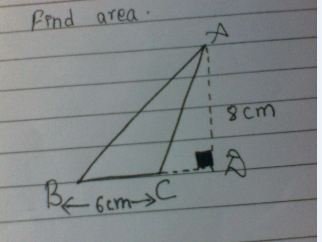 Find area.
A
8cm
B
C
D
6cm